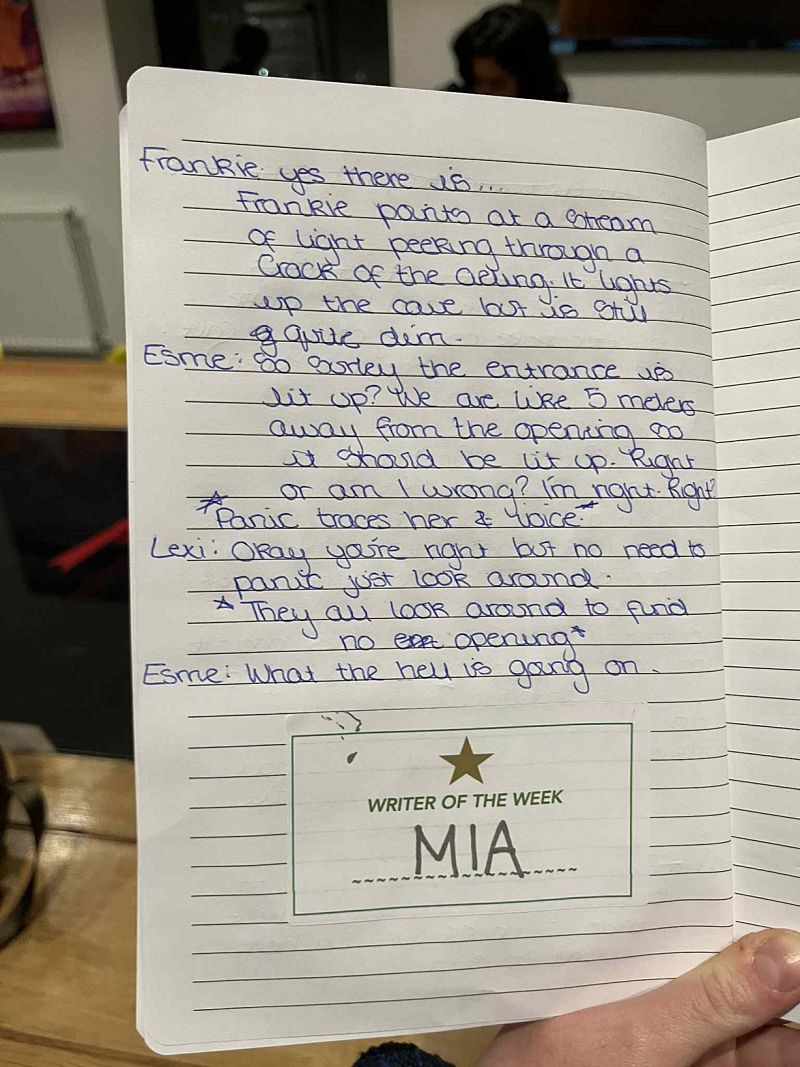 Frankie: yes there is...
Frankie points at a stream
of light peeking through a
crack of the celing. It lights
up the cave but is still
quite dim.
Esme: so surley the entrance is
lit up? We are like 5 meters
away from the opening so
it should be lit up. Right
or am I wrong? I'm right. Right?
*Panic traces her voice*
Lexi: Okay you're right but no need to
panic just look around.
*They all look around to find
no opening*
Esme: What the hell is going on.
WRITER OF THE WEEK
MIA